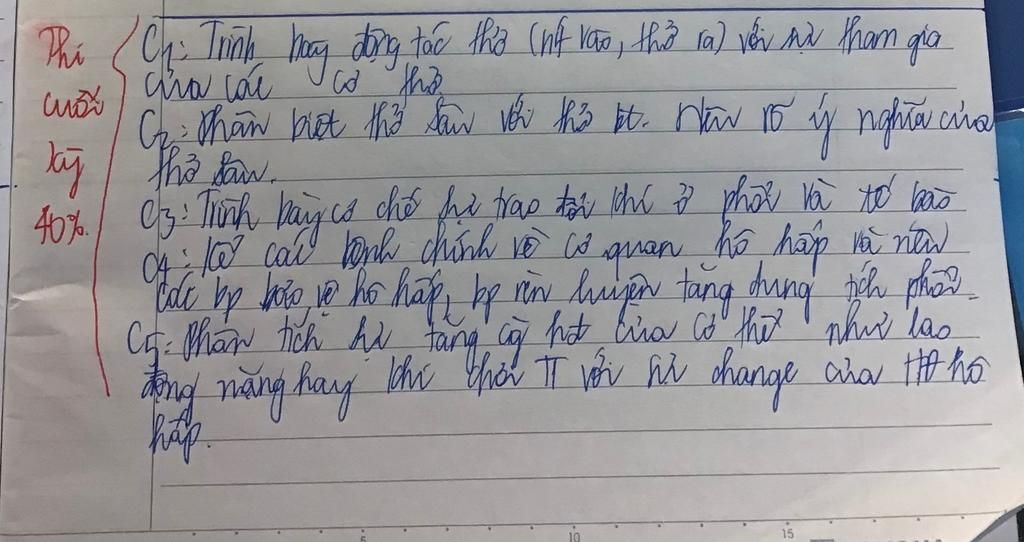 Thi
cuối
kỳ
40%.
C1: Trình bày động tác thở (hít vào, thở ra) với sự tham gia
của các cơ thở
C2: Phân biệt thở sâu với thở bt. Nêu rõ ý nghĩa của
thở sâu.
C3: Trình bày cơ chế sự trao đổi khí ở phổi và tế bào
C4: Kể các bệnh chính về cơ quan hô hấp và nêu
các bp bảo vệ hô hấp, bp rèn luyện tăng dung tích phổi.
C5: Phân tích sự tăng cg hđ của cơ thể như lao
động nặng hay khi chơi TT với sự change của HĐ hô
hấp.
5
10
15